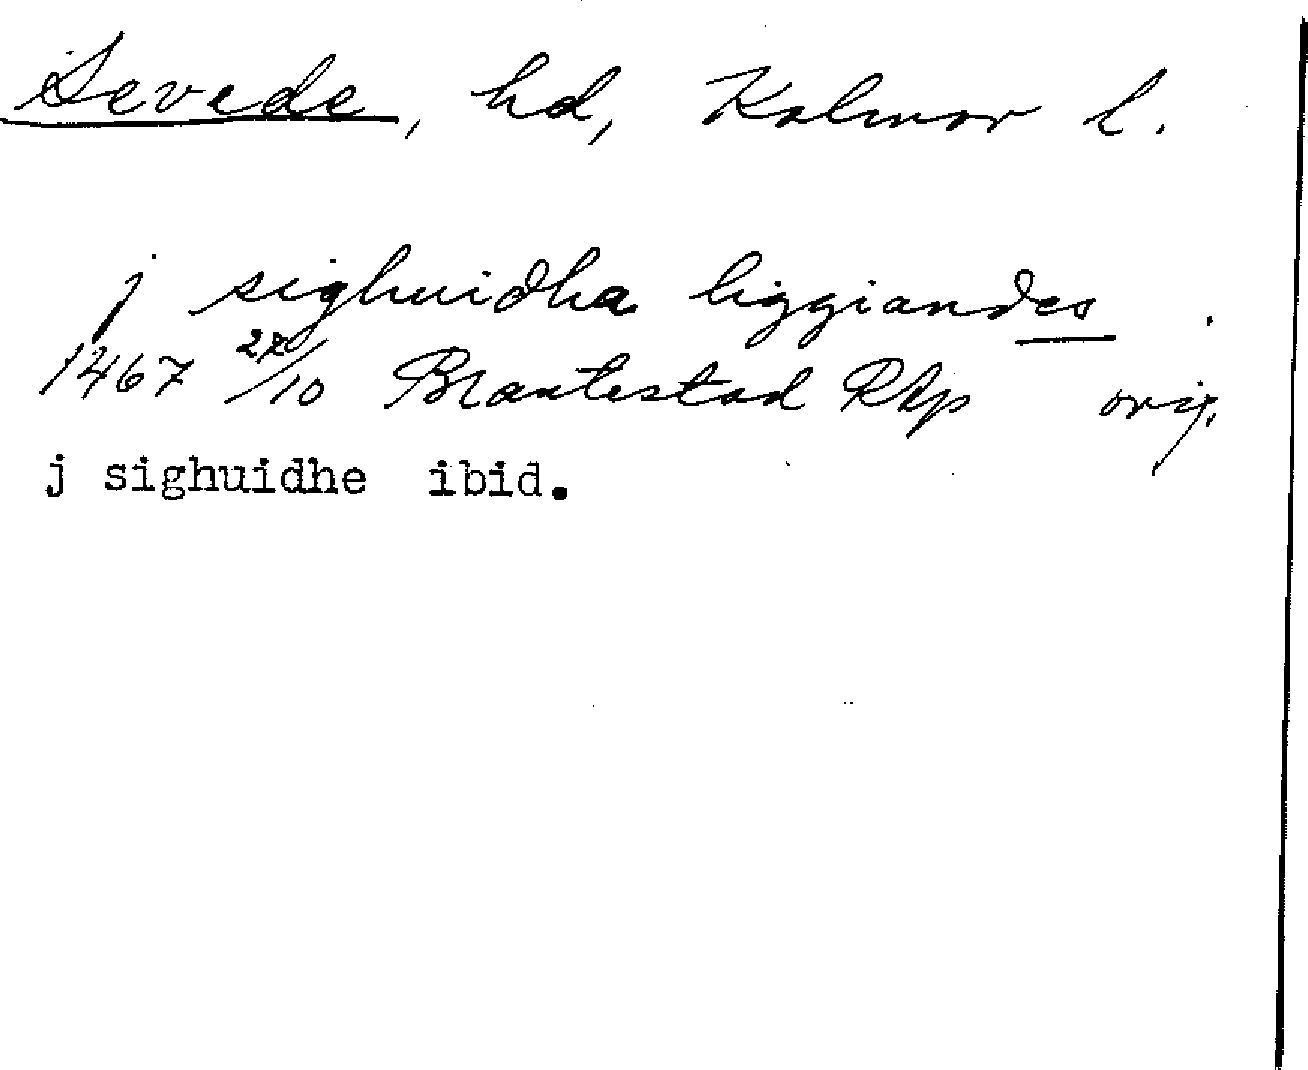 Sevede, hd, Kalmar l.
j sighuidha liggiandes
1467 27/10 Brantestad RAp orig.
j sighuidhe ibid.